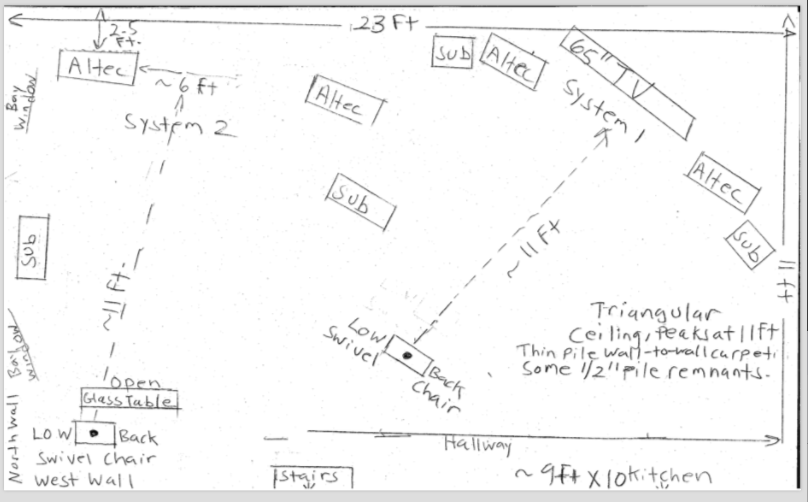 23 Ft
2.5
Ft.
Altec
~6 ft
System 2
Bay
Window
Altec
Sub
Sub
Altec
65" TV
System 1
Altec
Sub
11 ft
Sub
~11 Ft.
~11 Ft
Low
Swivel
Back
Chair
Triangular
Ceiling, Peaks at 11ft
Thin Pile wall-to-wall carpeti
Some 1/2" pile remnants.
open
Glass Table
Low
Back
Swivel Chair
West Wall
North wall
Hallway
Stairs
~9ft X10 Kitchen